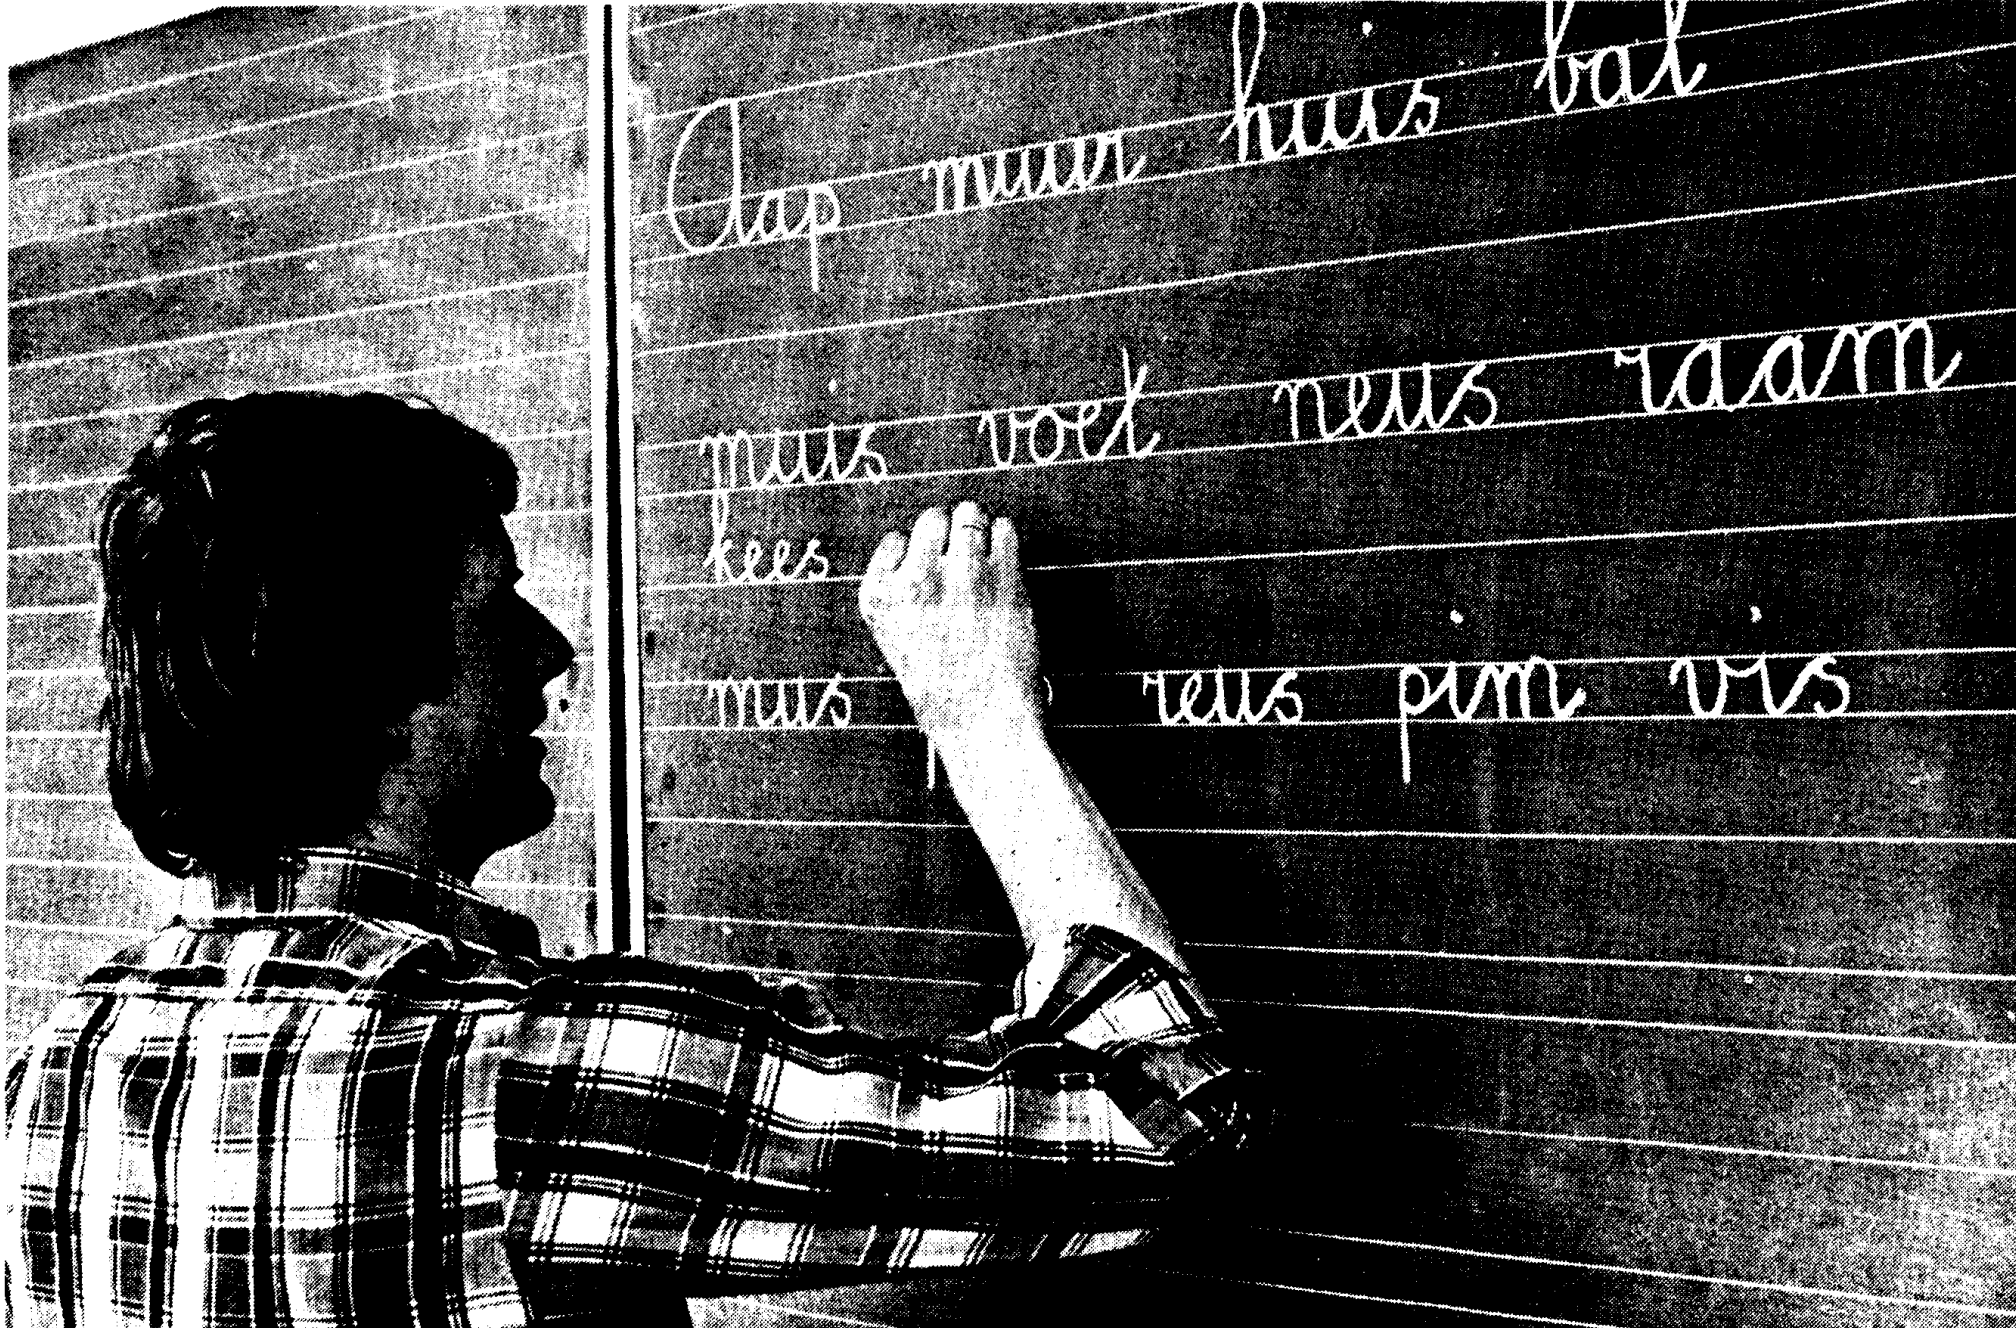 Aap muur huis bal
muis voet neus raam
kees
mus reus pim vis